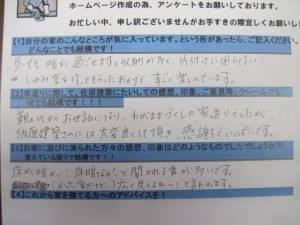 ホームページ作成の為、アンケートをお願いしております。
お忙しい中、申し訳ございませんがお手すきの際宜しくお願いし
【1】自分の家のこんなところが気に入っています。という所があったら、ご記入ください。
どんなことでも結構です!!
冬でも暖かく過ごせますし収納が多く、片付けに困らない!
【2】家造りに際して、佐原建築にたいしての感想、印象、ご意見等、クレームでも
何でも結構です!!!
親の代からお世話になり、わがままづくしの家造りでしたが、
佐原建築さんには大変良くして頂き、感謝でいっぱいです。
【3】お家に遊びに来られた方々の感想、印象はどのようなものでしたでしょうか?
覚えている限りで結構です!!
床が暖かい!床暖なの!と聞かれる事が多いです。
広く見えるね〜!と言われます。
【4】これから家を建てる方へのアドバイスを!